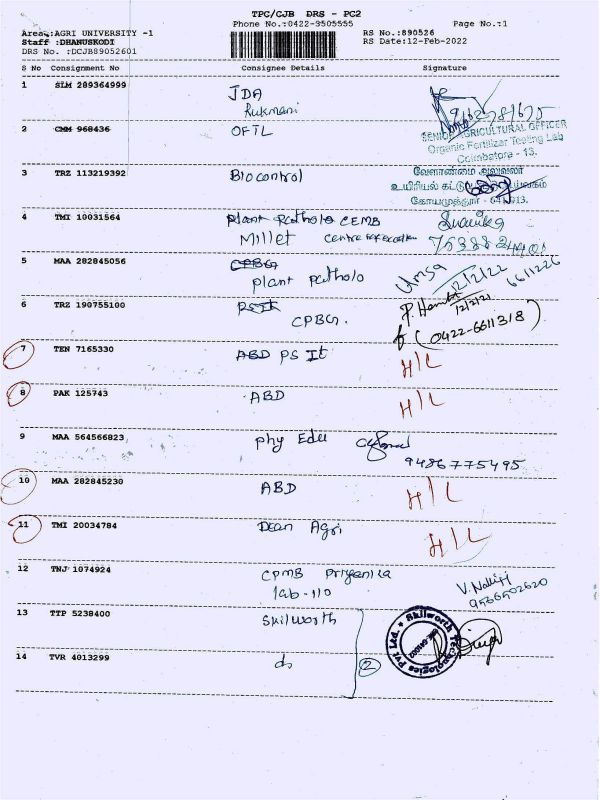 TPG/CJB DRS - PC2
Phone No.:0422-3505555 Page No.:1
Area:AGRI UNIVERSITY -1 RS No.:890526
Staff :DHANUSKODI RS Date:12-Feb-2022
DRS No. :DCJB89052601
S No Consignment No Consignee Details Signature
1 SLM 289364999 JDA
Rukmani
2 CMM 968436 OFTL
SENIOR AGRICULTURAL OFFICER
Organic Fertilizer Testing Lab
Coimbatore - 13.
3 TRZ 113219392 Biocontrol
வேளாண்மை அலுவலர்
கோயமுத்தூர் - 641 013.
4 TMI 10031564 plant patholo CEMB
Millet
5 MAA 282845056 CPBG 12/2/22 6611226
plant patholo
6 TRZ 190755100 12/2/21
CPBG. (0422-6611318)
7 TEN 7165330 ABD PS It H/L
8 PAK 125743 ABD H/L
9 MAA 564566823 phy Edu
9486775495
10 MAA 282845230 ABD H/L
11 TMI 20034784 Dean Agri H/L
12 TNJ 1074924 CPMB Priyanka
lab-110
9566502620
13 TTP 5238400 Skilworth
Skilworth Technologies Pvt Ltd.
14 TVR 4013299 do 2